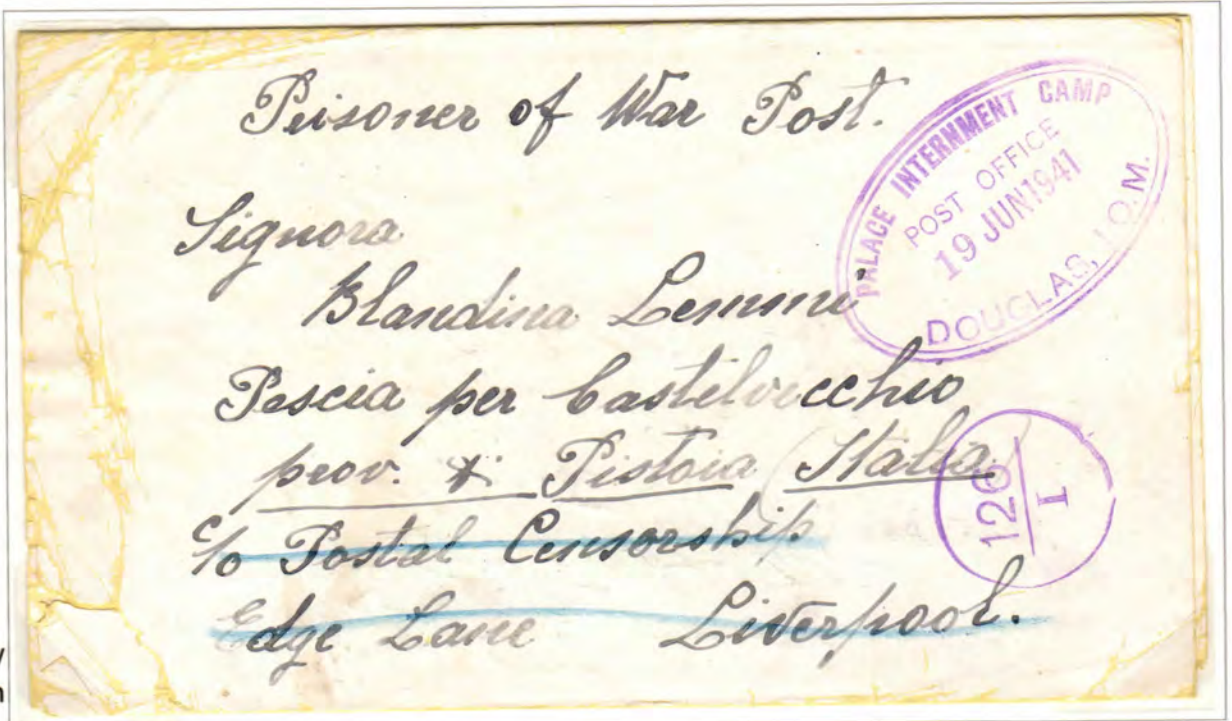 Prisoner of War Post.
PALACE INTERNMENT CAMP
POST OFFICE
19 JUN 1941
DOUGLAS, I.O.M.
Signora
Blandina Lemmi
Pescia per Castelvecchio
prov. di Pistoia (Italia)
126
I
c/o Postal Censorship
Edge Lane Liverpool.